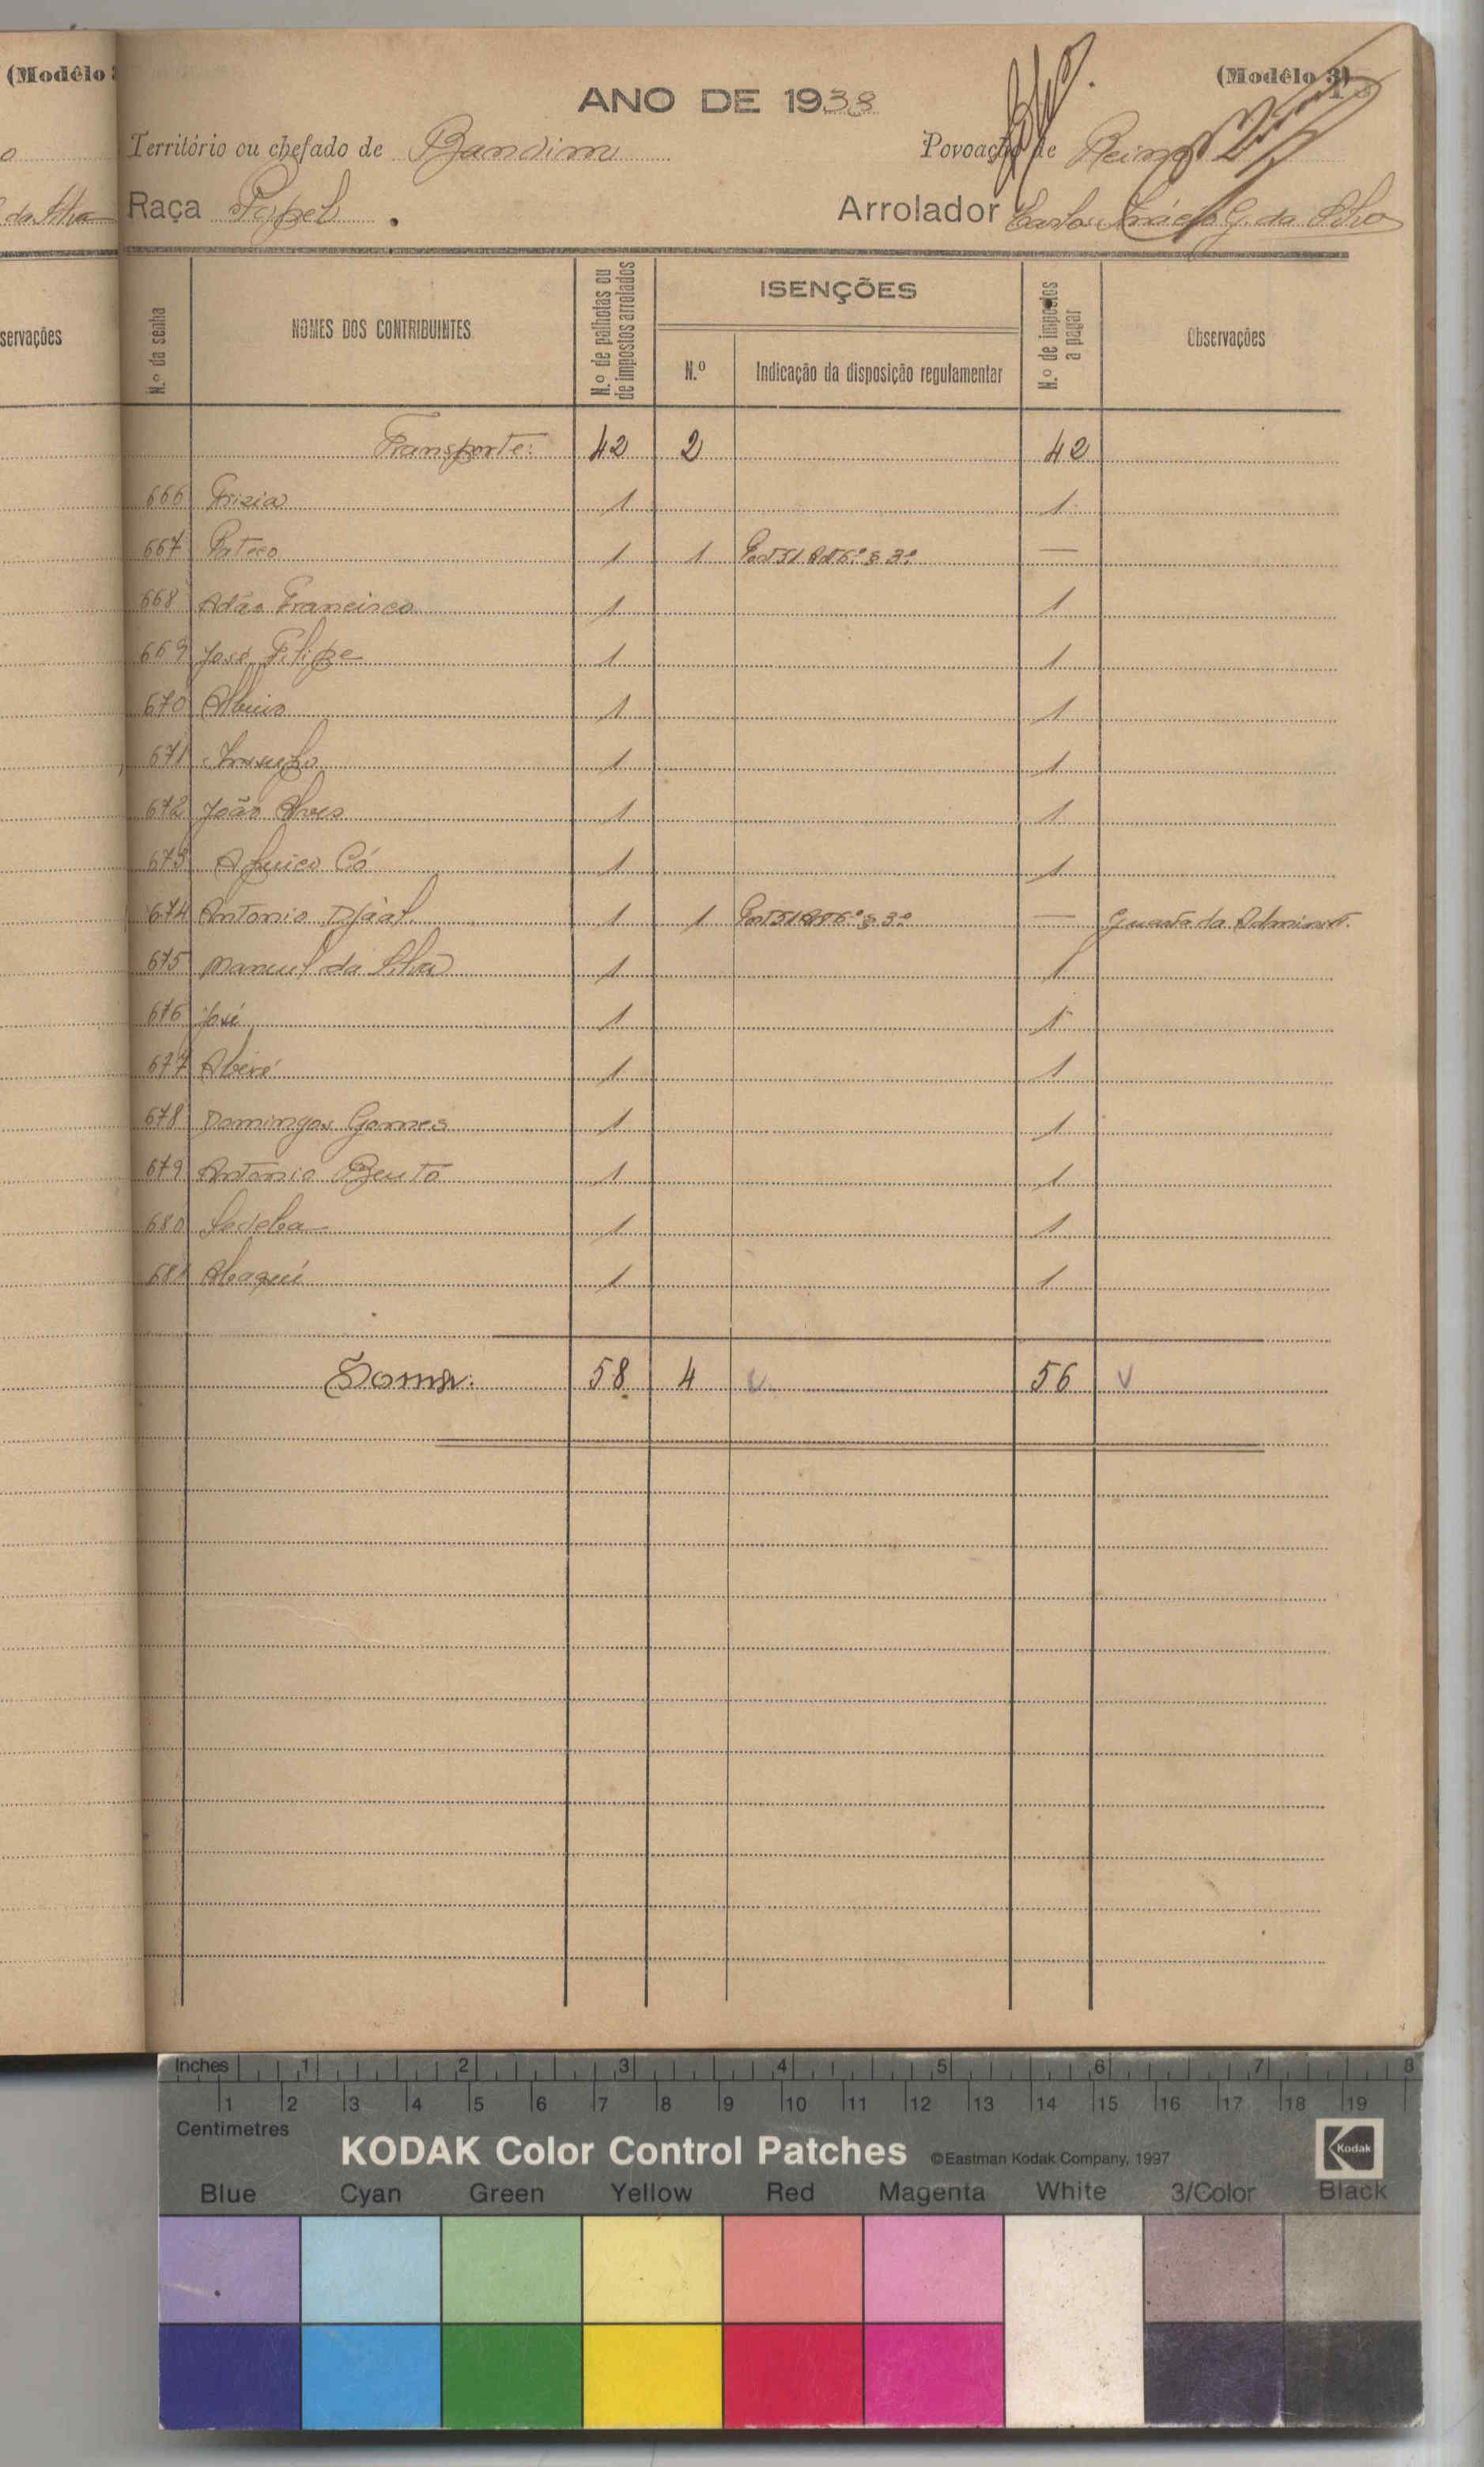 (Modêlo
da Silva
servações
(Modêlo 3)
ANO DE 1938
Território ou chefado de Bandim
Povoação de Reino
Raça Papel
Arrolador Carlos Inácio G. da Silva
N.º da senha
NOMES DOS CONTRIBUINTES
N.º de palhotas ou de impostos arrolados
ISENÇÕES
N.º
Indicação da disposição regulamentar
N.º de impostos a pagar
Observações
Transporte: 42 2 42
666 1 1
667 1 1 Art 6.º § 3.º —
668 Adão Francisco 1 1
669 José Filipe 1 1
670 1 1
671 1 1
672 João Alves 1 1
673 Có 1 1
674 Antonio Djáal 1 1 Art 6.º § 3.º — Guarda da Administ.
675 Manuel da Silva 1 1
676 José 1 1
677 1 1
678 Domingos Gomes 1 1
679 Antonio Bento 1 1
680 1 1
681 1 1
Soma: 58 4 56
Inches 1 2 3 4 5 6 7 8
1 2 3 4 5 6 7 8 9 10 11 12 13 14 15 16 17 18 19
Centimetres
KODAK Color Control Patches ©Eastman Kodak Company, 1997 Kodak
Blue Cyan Green Yellow Red Magenta White 3/Color Black